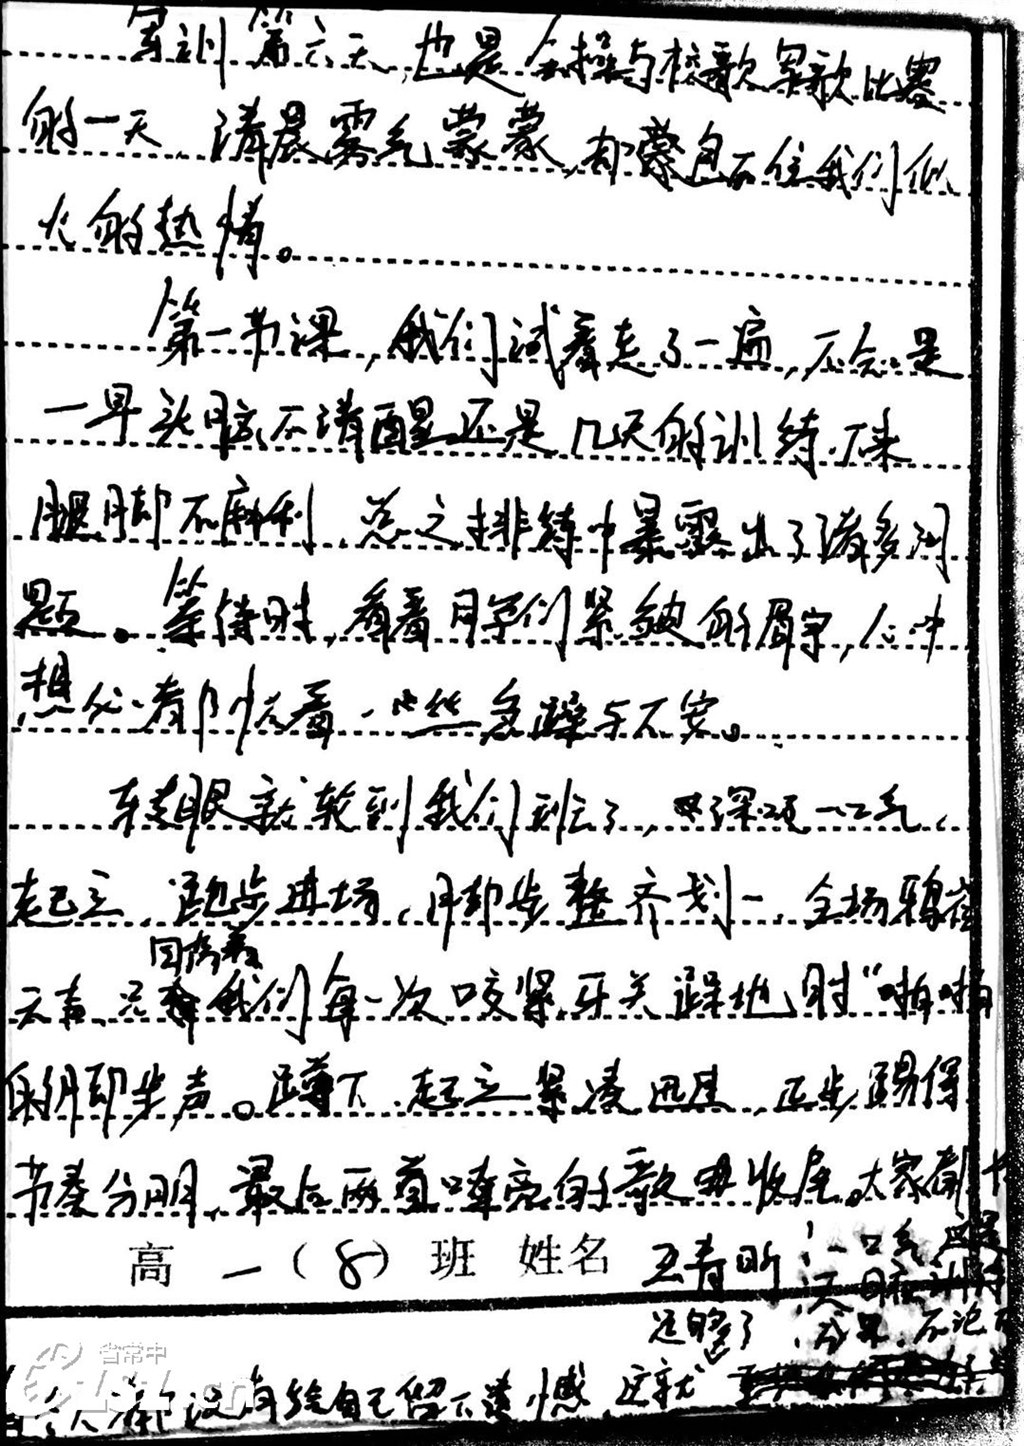 军训第六天,也是会操与校歌军歌比赛
的一天,清晨雾气蒙蒙,却蒙包不住我们似
火的热情。
第一节课,我们试着走了一遍,不知是
一早头脑不清醒还是几天的训练下来
腿脚不麻利,总之排练中暴露出了诸多问
题。等待时,看着同学们紧皱的眉宇,心中
想必有怀着一些急躁与不安。
转眼就轮到我们到了,深吸一口气,
起立,跑步进场,脚步整齐划一,全场鸦雀
回荡着
无声,只我们每一次咬紧牙关踩地时“啪啪
的脚步声。蹲下,起立紧凑迅速,正步踢得
节奏分明,最后两首嘹亮的歌曲收尾。大家都
高一(8)班 姓名 王青昕
一口气,这是
天的训
足够了 成果,不论
人都没有给自己留下遗憾,这就
省常中